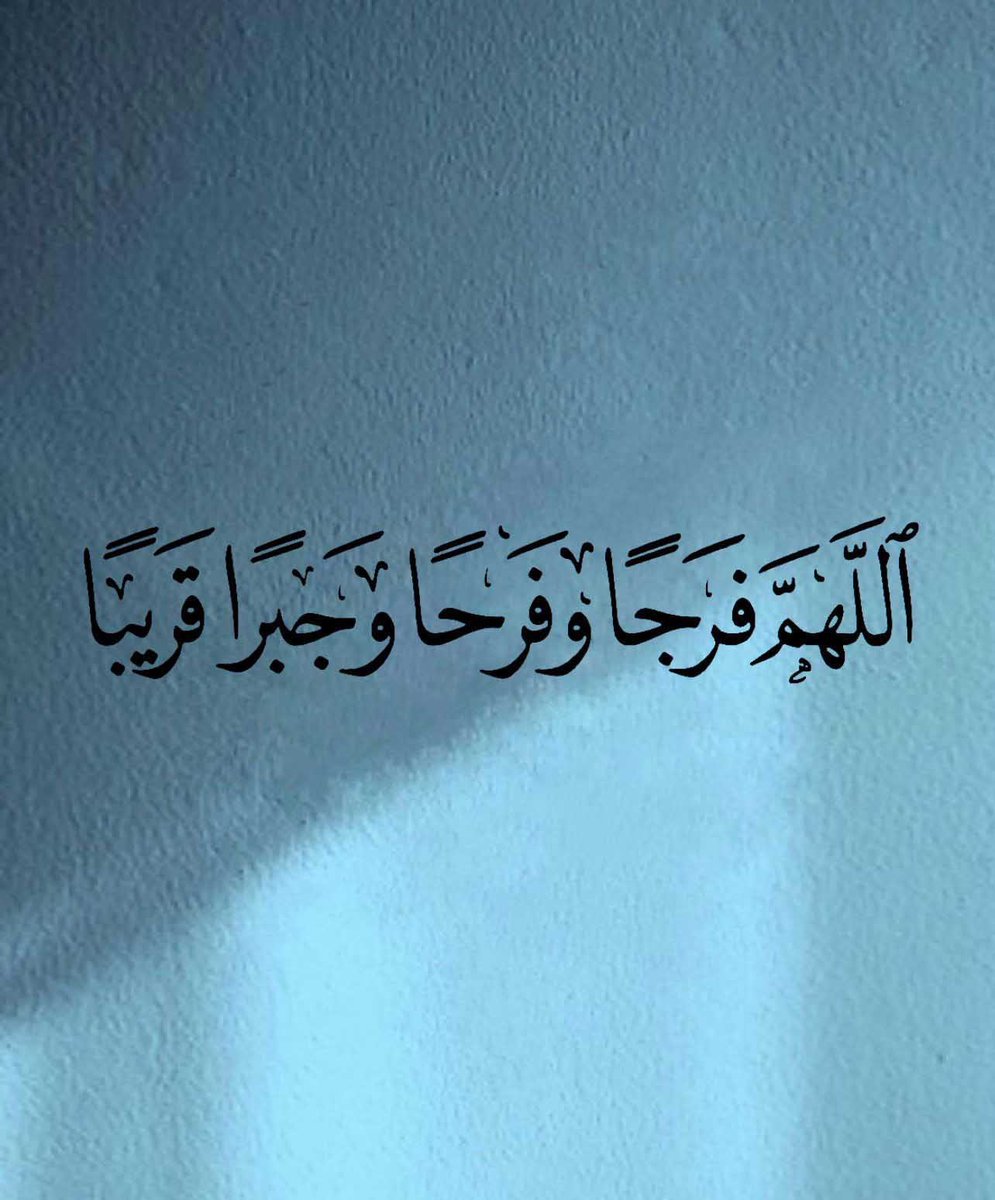 ٱللَّهُمَّ فَرَجًا وَفَرَحًا وَجَبْرًا قَرِيبًا